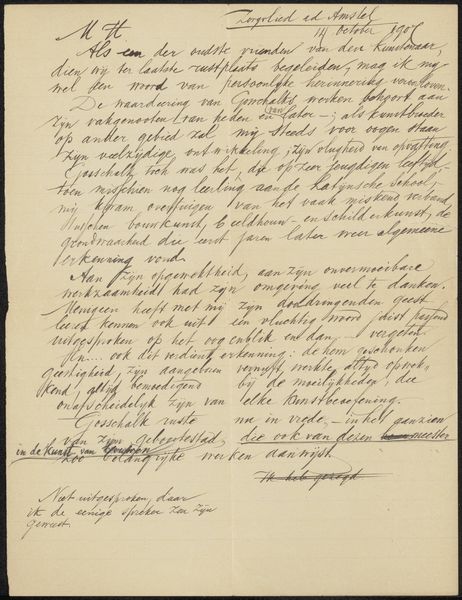 Zorgvlied ad Amstel
14 October 1907
M H
Als een der oudste vrienden van den kunstenaar,
dien wij ter laatste rustplaats begeleiden, mag ik mij
wel een woord van persoonlijke herinnering veroorloven.
De waardeering van Gosschalks werken behoort aan
zijn vakgenooten van heden en van later —; als kunstbroeder
op ander gebied zal mij steeds voor oogen staan
zijn veelzijdige ontwikkeling, zijn vlugheid van opvatting.
Gosschalk toch was het, die op zeer jeugdigen leeftijd,
toen misschien nog leerling aan de Latijnsche School,
mij kwam overtuigen van het vaak miskend verband
tusschen bouwkunst, beeldhouw- en schilderkunst, de
grondwaarheid die eerst jaren later weer algemeene
erkenning vond.
Aan zijn opgewektheid, aan zijn onvermoeibare
werkzaamheidt had zijn omgeving veel te danken.
Menigeen heeft met mij zijn doordringenden geest
leeren kennen ook uit een vluchtig woord, juist passend
uitgesproken op het oogenblik en dan, — vergeten.
En.... ook dit verdient erkenning: de hem geschonken
geestigheid, zijn aangeboren vernuft, werkte altijd opwek-
kend, altijd bemoedigend bij de moeilijkheden, die
onafscheidelijk zijn van elke kunstbeoefening.
Gosschalk ruste nu in vrede, — in het gansien
van zijn geboortestad, die ook van dezen meester
in de kunst van bouwen
zoo belangrijke werken aanwijst.
Ik heb gezegd
Niet uitgesproken, daar
ik de eenige spreker zou zijn
geweest